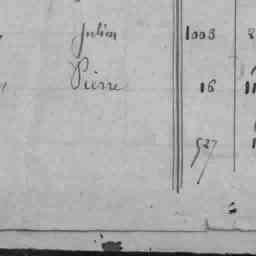 Julien 1003
Pierre 16
527